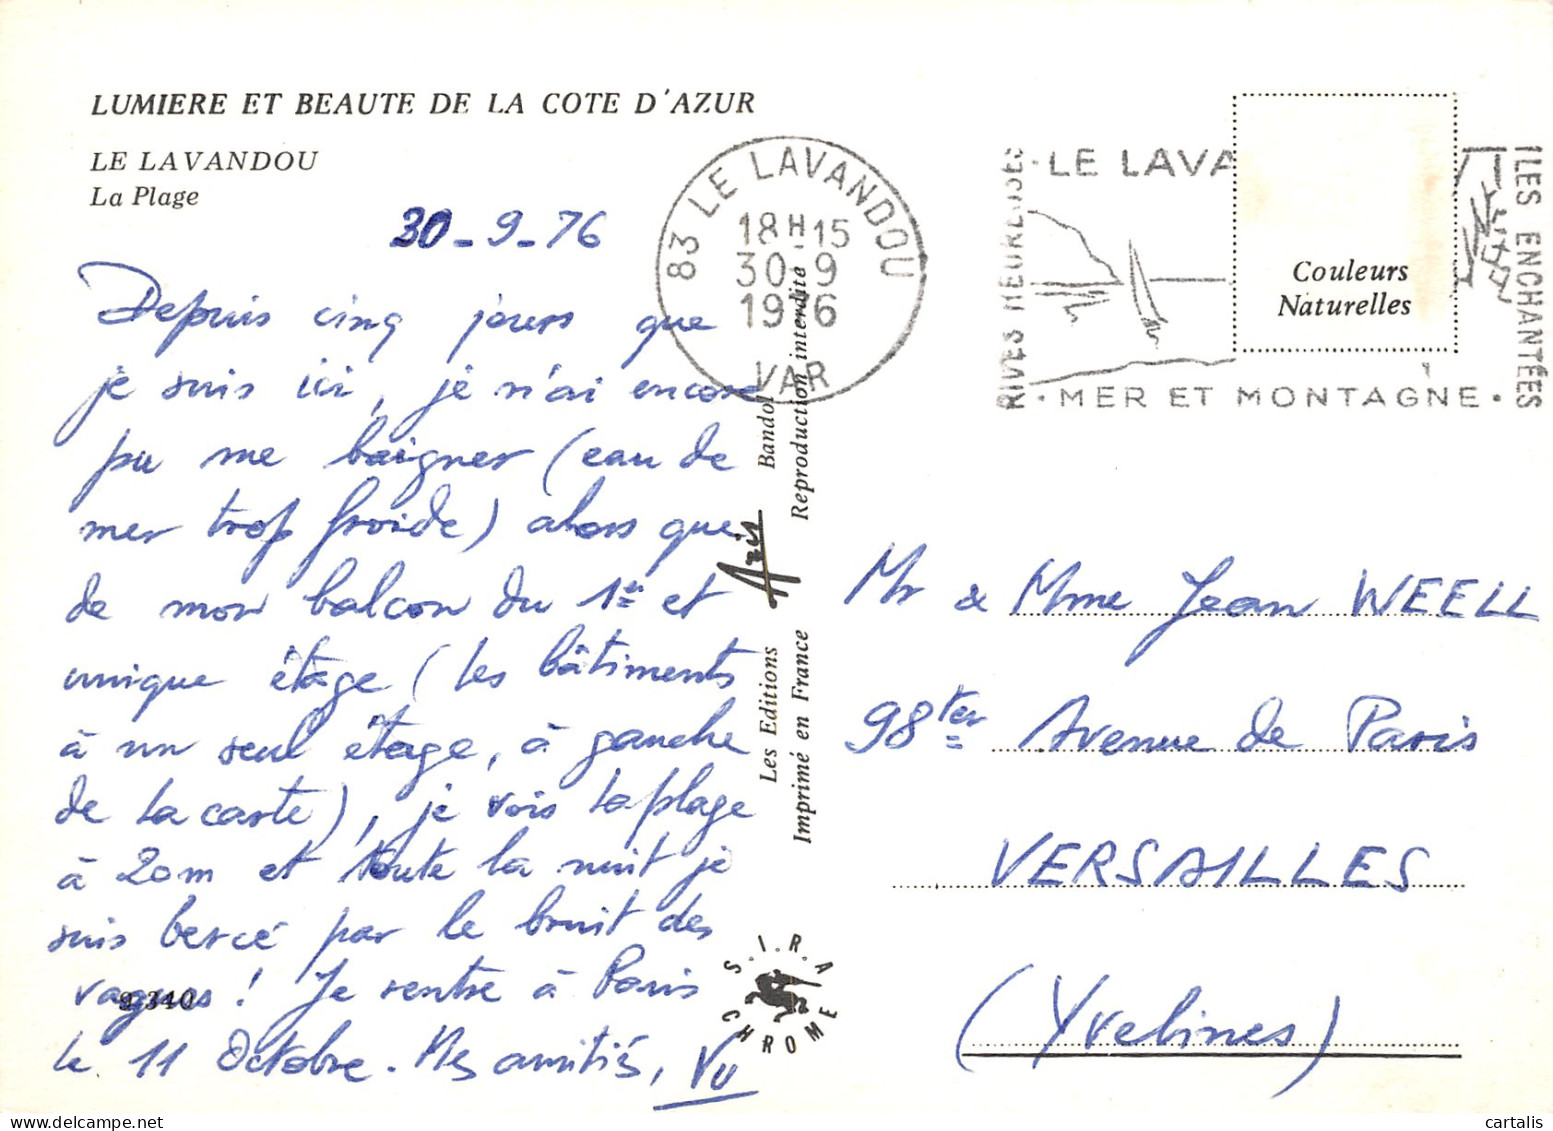 LUMIERE ET BEAUTE DE LA COTE D'AZUR
LE LAVANDOU
La Plage
30-9-76
Depuis cinq jours que
je suis ici, je n'ai encore
pu me baigner (eau de
mer trop froide) alors que
de mon balcon du 1er et
unique étage (les bâtiments
à un seul étage, à gauche
de la carte), je vois la plage
à 20m et toute la nuit je
suis bercé par le bruit des
vagues ! Je rentre à Paris
le 11 Octobre. Mes amitiés,
9.340
83 LE LAVANDOU
18H15
30-9
1976
VAR
Les Editions Aris Bandol
Imprimé en France Reproduction interdite
S.I.R.A
CHROME
RIVES HEUREUSES
· LE LAVA
ILES ENCHANTÉES
· MER ET MONTAGNE ·
Couleurs
Naturelles
Mr & Mme Jean WEELL
98ter Avenue de Paris
VERSAILLES
(Yvelines)
cartalis